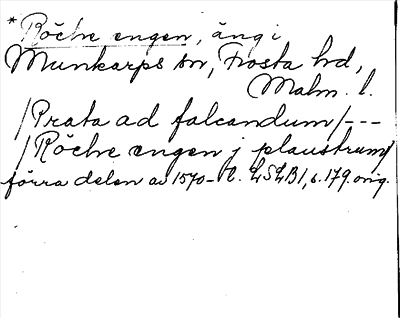 *Röche engen, äng i
Munkarps sn, Frosta hd,
Malm. l.
/Prata ad falcandum/---
/Röche engen j plaustrum/
förra delen av 1570-t. LSLB1, s. 179. orig.